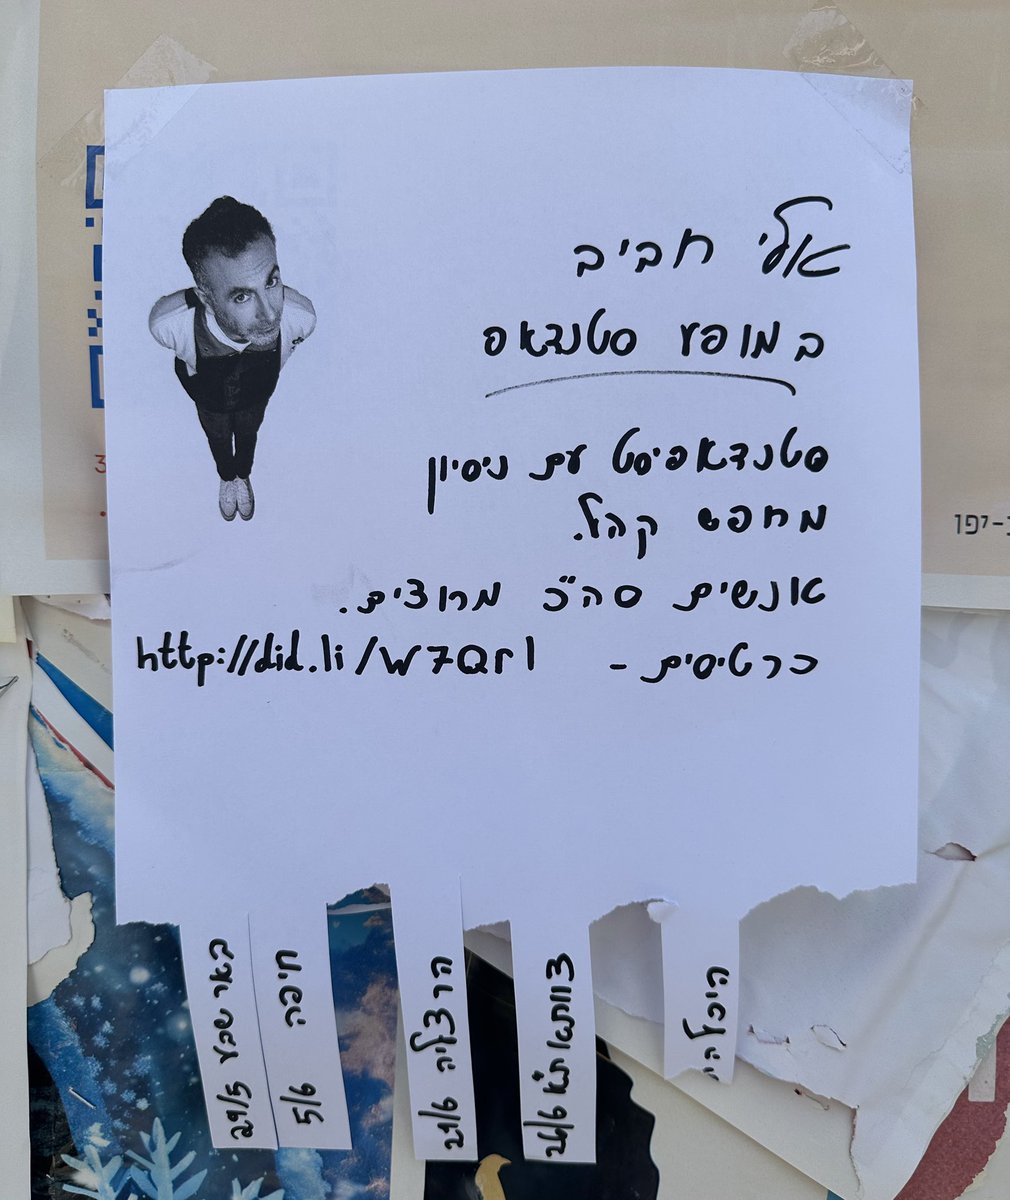 אלי חביב
במופע סטנדאפ
סטנדאפיסט עם ניסיון
מחפש קהל.
אנשים סה"כ מרוצים.
כרטיסים - http://did.li/W7Qrl
באר שבע 29/5
חיפה 5/6
הרצליה 21/6
צוותא ת"א 26/6
היכל הי
ב-יפו
3